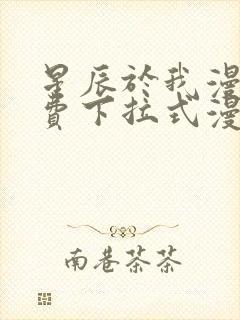 星辰於我漫
費下拉式漫
南巷茶茶